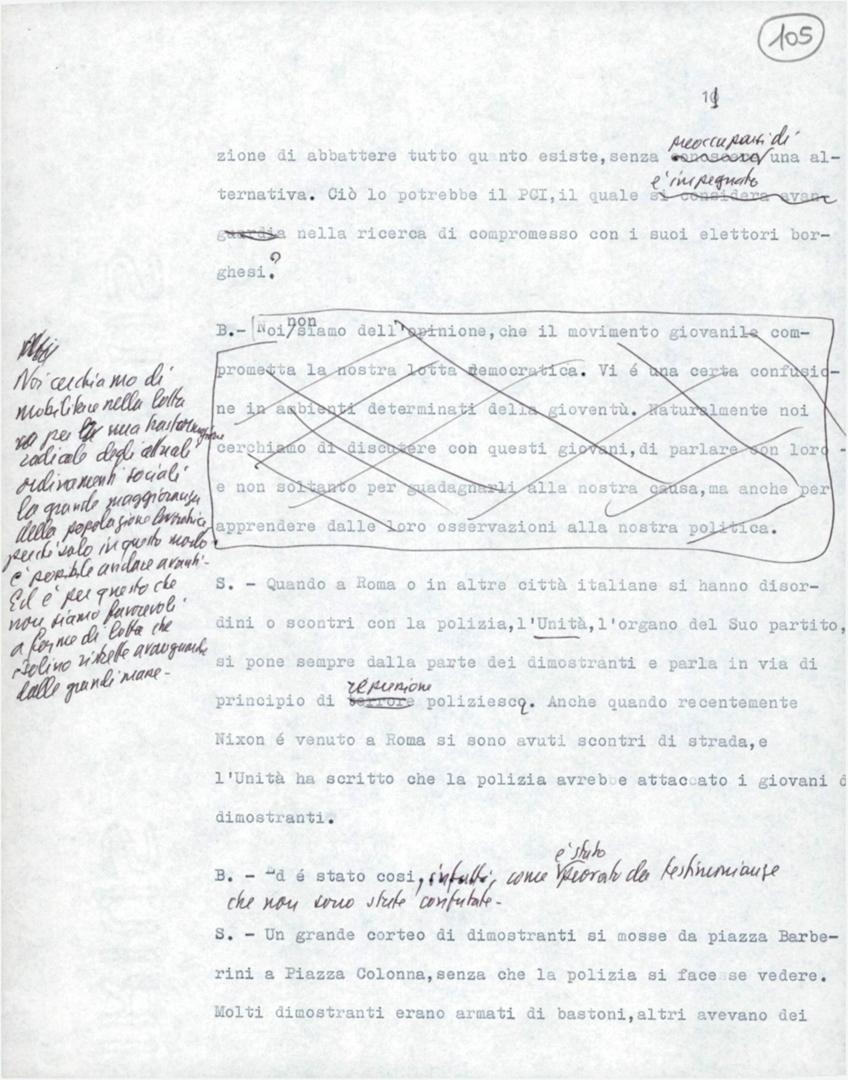 105
10
preoccuparsi di
zione di abbattere tutto qu nto esiste,senza conoscere una al-
è impegnato
ternativa. Ciò lo potrebbe il PCI,il quale si considera avan
guardia nella ricerca di compromesso con i suoi elettori bor-
ghesi?
non
B.- Noi/siamo dell'opinione,che il movimento giovanile com-
prometta la nostra lotta democratica. Vi é una certa confusio-
ne in ambienti determinati della gioventù. Naturalmente noi
cerchiamo di discutere con questi giovani,di parlare con loro -
e non soltanto per guadagnarli alla nostra causa,ma anche per
apprendere dalle loro osservazioni alla nostra politica.
Noi cerchiamo di
mobilitare nella lotta
per una trasformazione
radicale degli attuali
ordinamenti sociali
la grande maggioranza
della popolazione lavoratrice
perché solo in questo modo
è possibile andare avanti.
Ed è per questo che
non siamo favorevoli
a forme di lotta che
isolino ristrette avanguardie
dalle grandi masse-
S. - Quando a Roma o in altre città italiane si hanno disor-
dini o scontri con la polizia,l'Unità,l'organo del Suo partito,
si pone sempre dalla parte dei dimostranti e parla in via di
repressione
principio di terrore poliziesca. Anche quando recentemente
Nixon é venuto a Roma si sono avuti scontri di strada,e
l'Unità ha scritto che la polizia avrebbe attaccato i giovani d
dimostranti.
è stato
B. - Ed é stato cosi, infatti, come provato da testimonianze
che non sono state confutate-
S. - Un grande corteo di dimostranti si mosse da piazza Barbe-
rini a Piazza Colonna,senza che la polizia si facesse vedere.
Molti dimostranti erano armati di bastoni,altri avevano dei